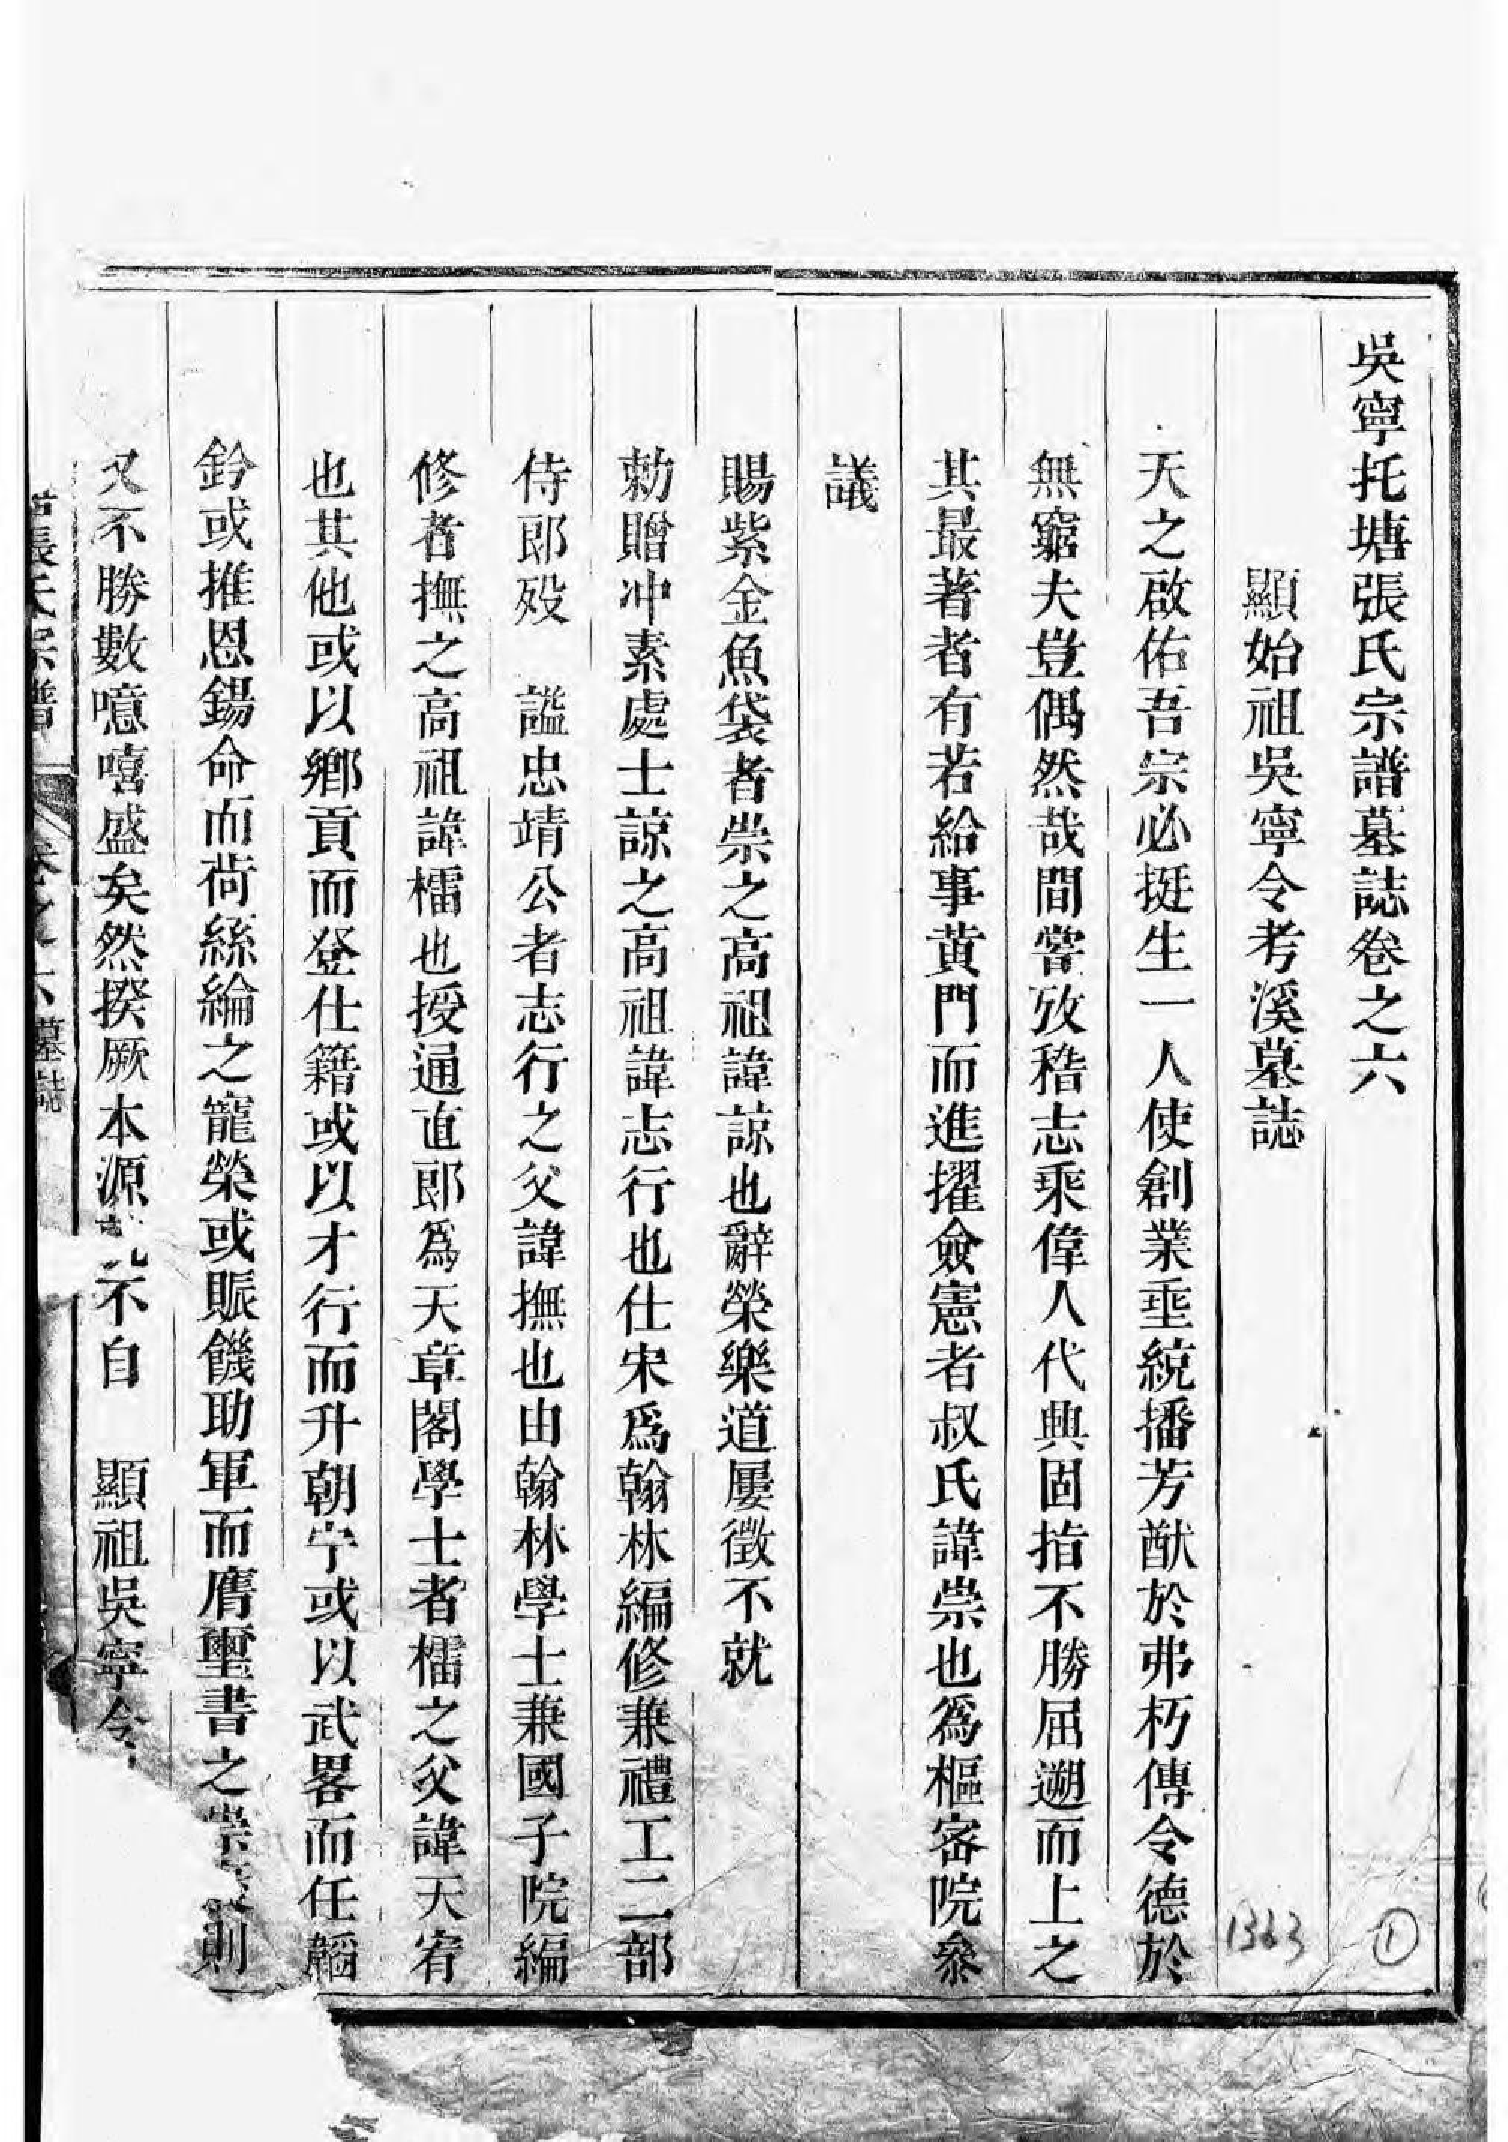 吳寧托塘張氏宗譜墓誌卷之六
顯始祖吳寧令考溪墓誌
天之啟佑吾宗必挺生一人使創業垂統播芳猷於弗朽傳令德於
無窮夫豈偶然哉間嘗攷稽志乘偉人代興固指不勝屈遡而上之
其最著者有若給事黃門而進擢僉憲者叔氏諱崇也爲樞密院叅
議
賜紫金魚袋者崇之高祖諱諒也辭榮樂道屢徵不就
勅贈冲素處士諒之高祖諱志行也仕宋爲翰林編修兼禮工二部
侍郎歿　謚忠靖公者志行之父諱撫也由翰林學士兼國子院編
修者撫之高祖諱檑也授通直郎爲天章閣學士者檑之父諱天宥
也其他或以鄉貢而登仕籍或以才行而升朝宁或以武畧而任韜
鈐或推恩錫命而荷絲綸之寵榮或賑饑助軍而膺璽書之崇則
又不勝數噫嘻盛矣然揆厥本源不自　顯祖吳寧令
張氏宗譜　卷之六　墓誌
1363
1